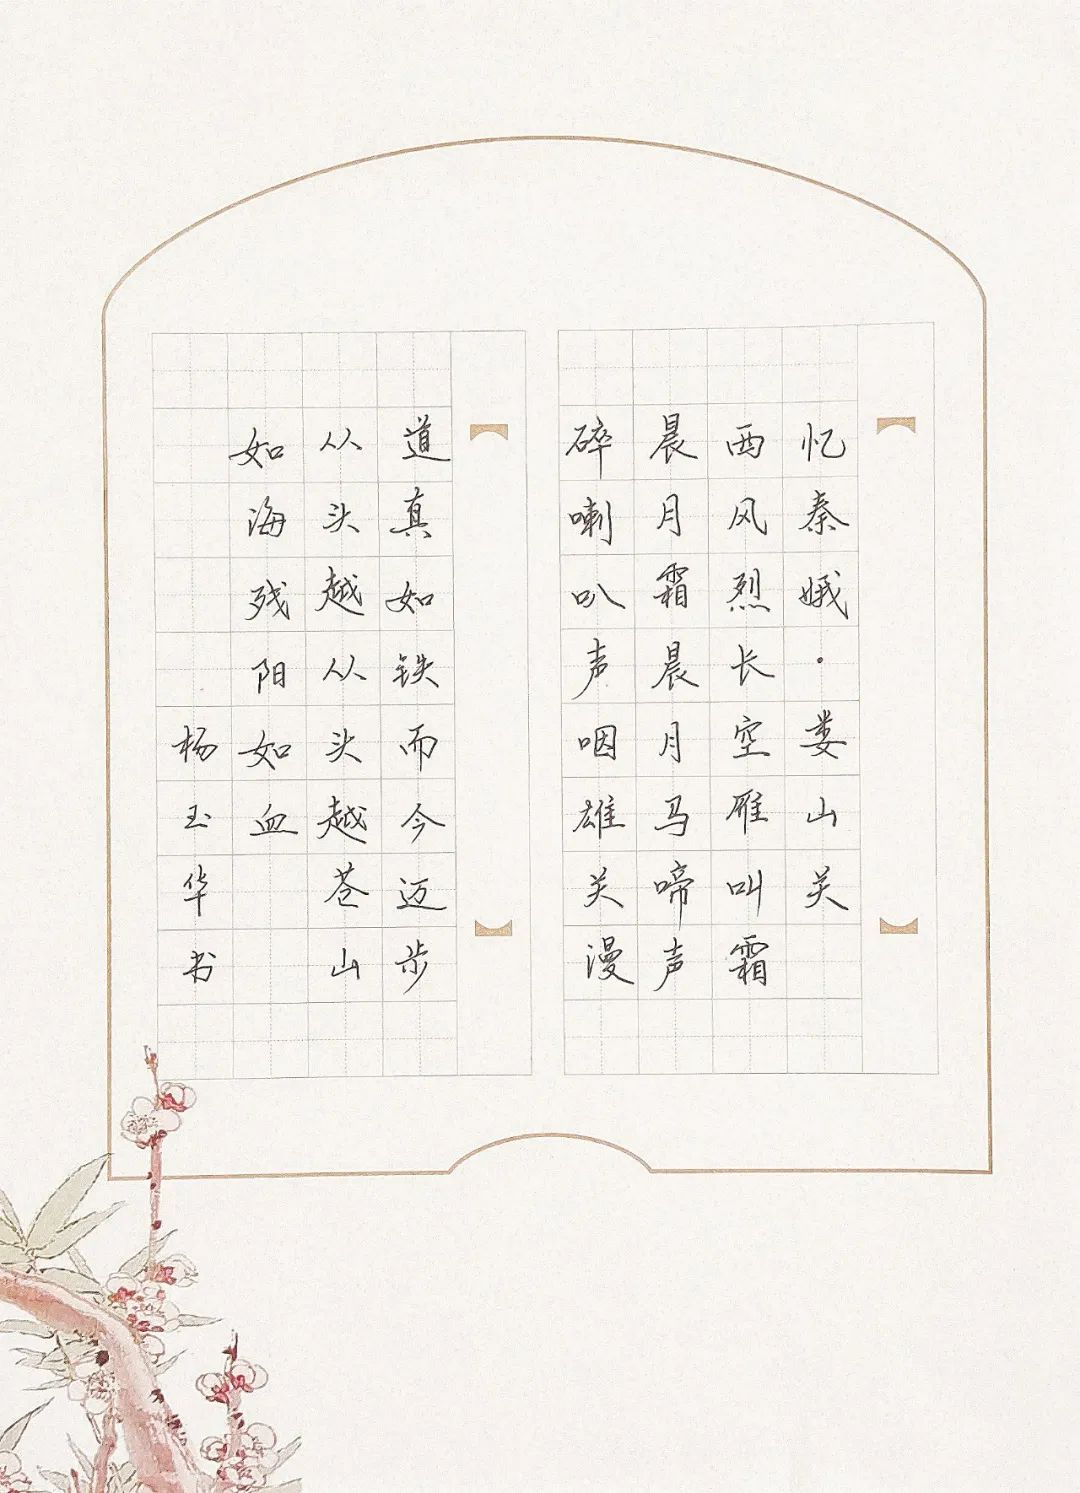 忆秦娥·娄山关
西风烈长空雁叫霜
晨月霜晨月马啼声
碎喇叭声咽雄关漫
道真如铁而今迈步
从头越从头越苍山
如海残阳如血
杨玉华书